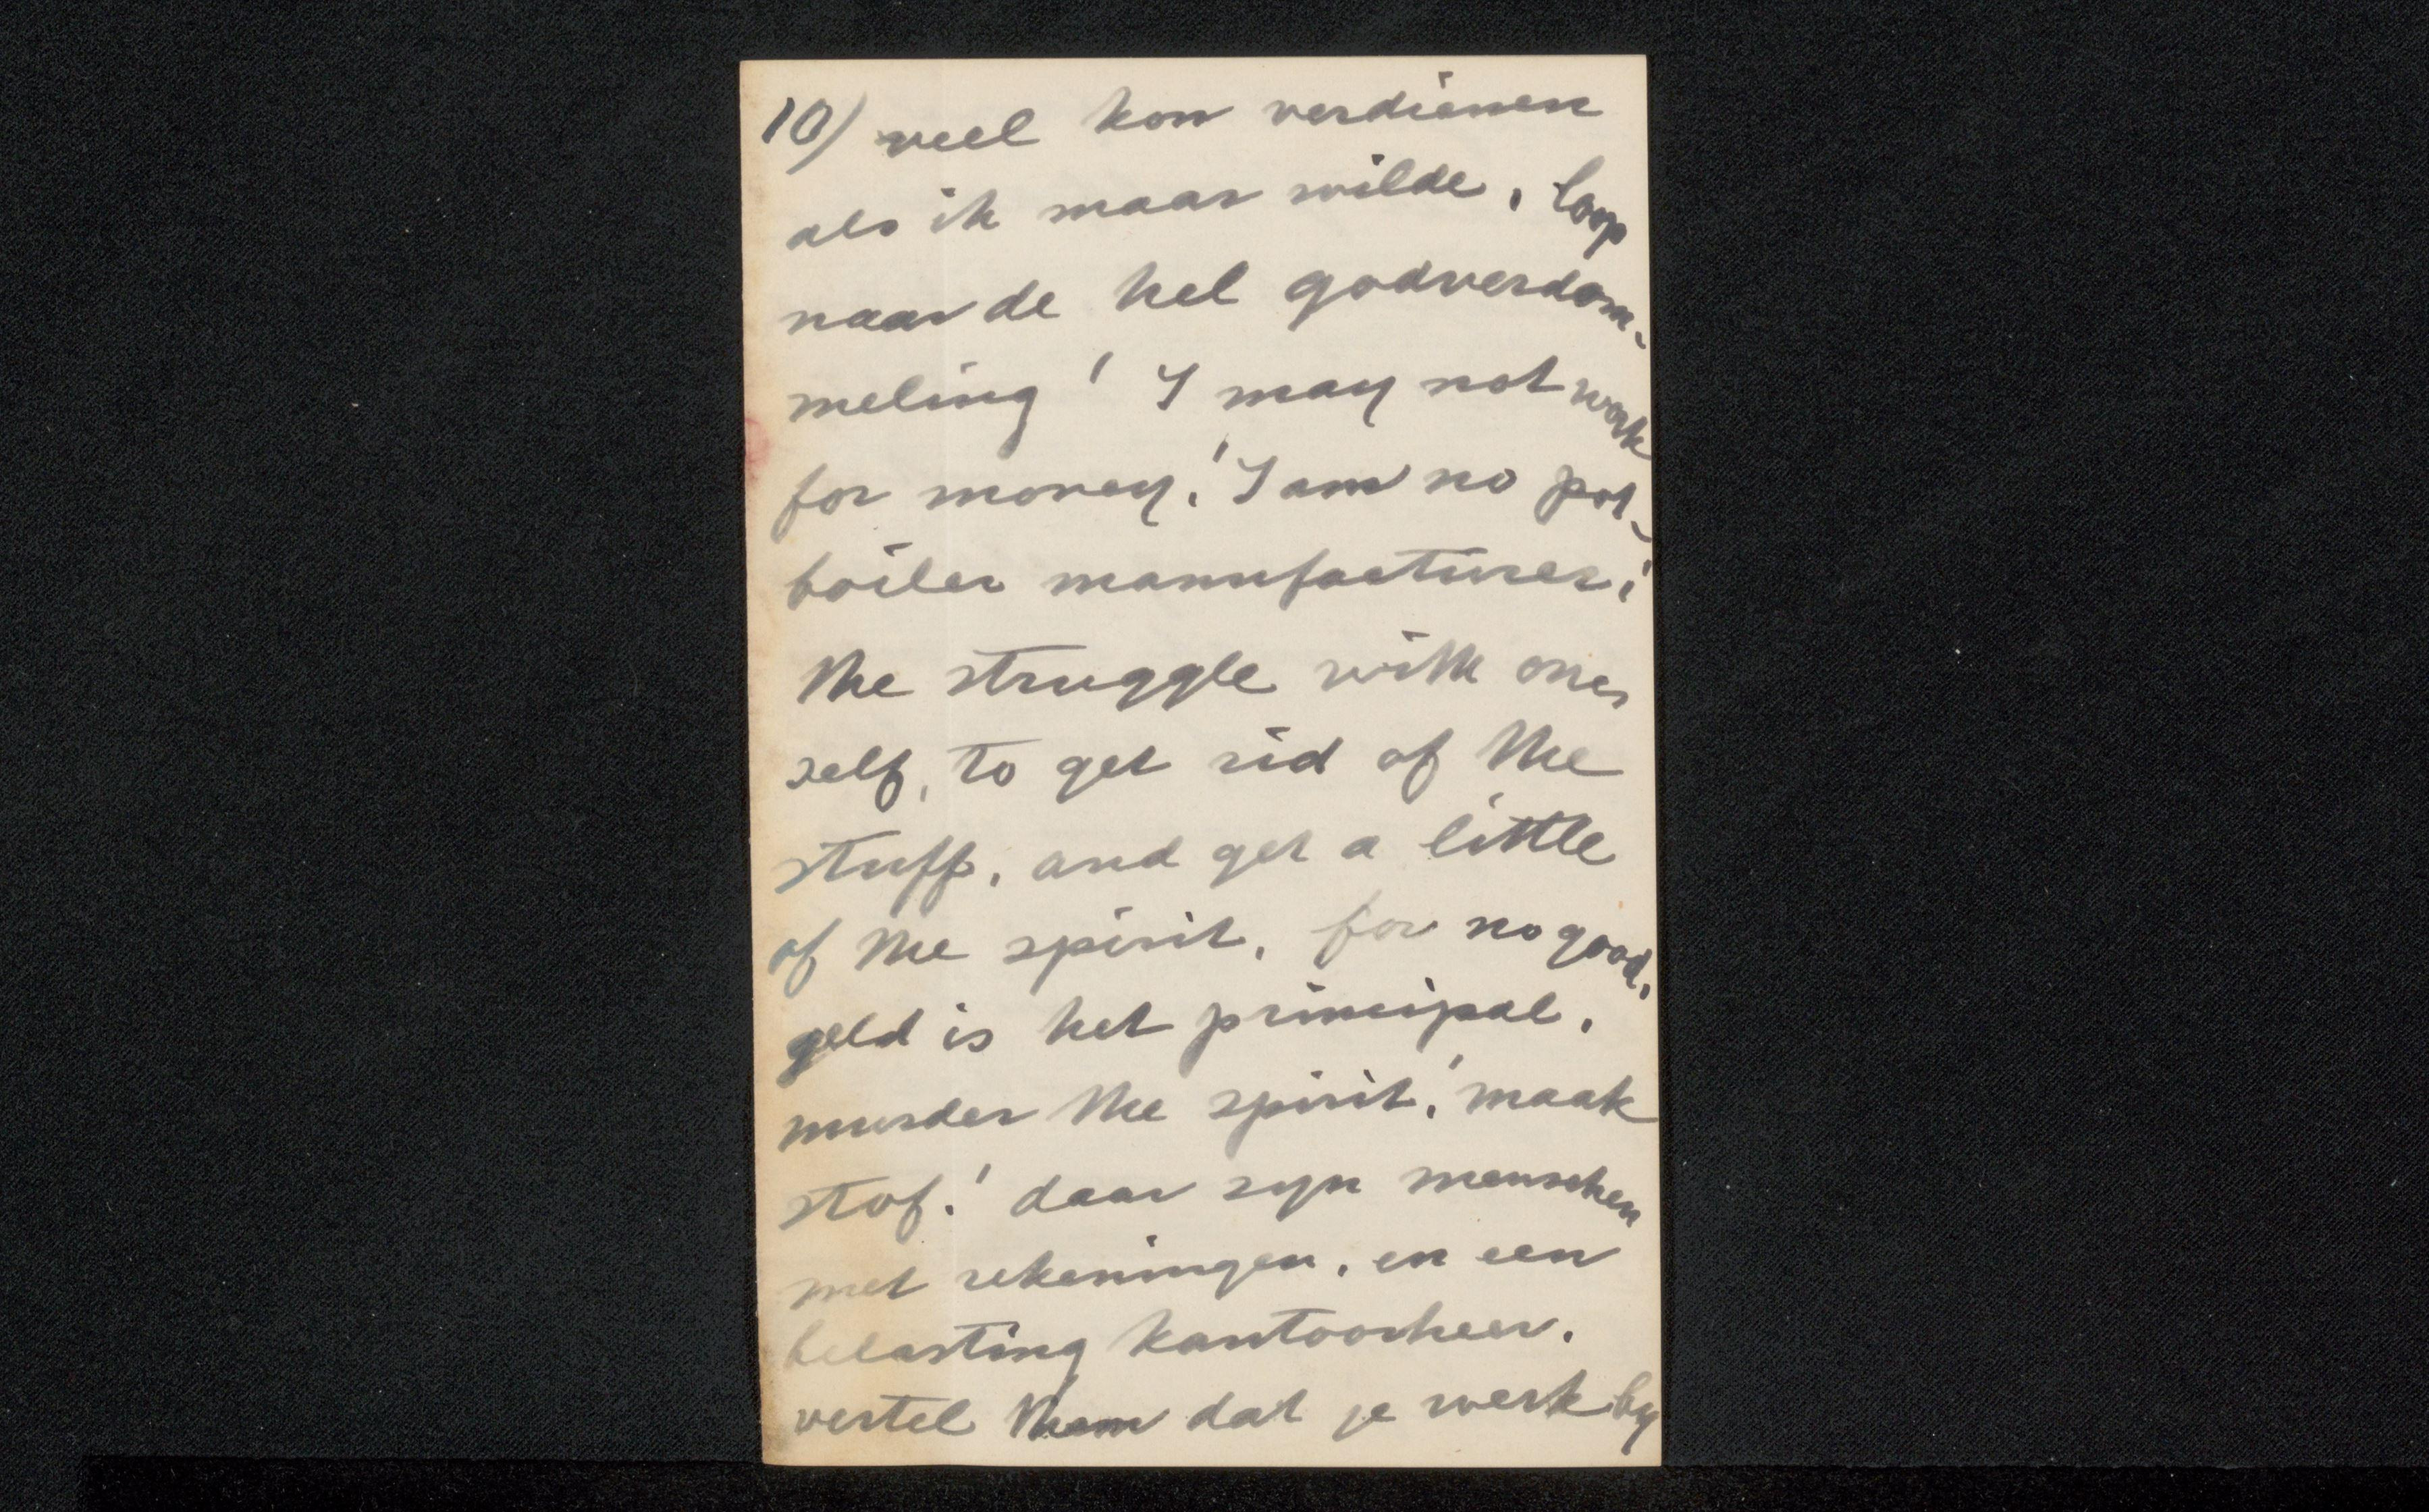 10) veel kon verdienen
als ik maar wilde, loop
naar de hel godverdom-
meling! I may not work
for money! I am no pot-
boiler manufacturer!
the struggle with one,
self, to get rid of the
stuff, and get a little
of the spirit, for no good,
geld is het principal.
murder the spirit! maak
stof! daar zyn menschen
met rekeningen, en een
belasting kantoorheer.
vertel them dat je werk by